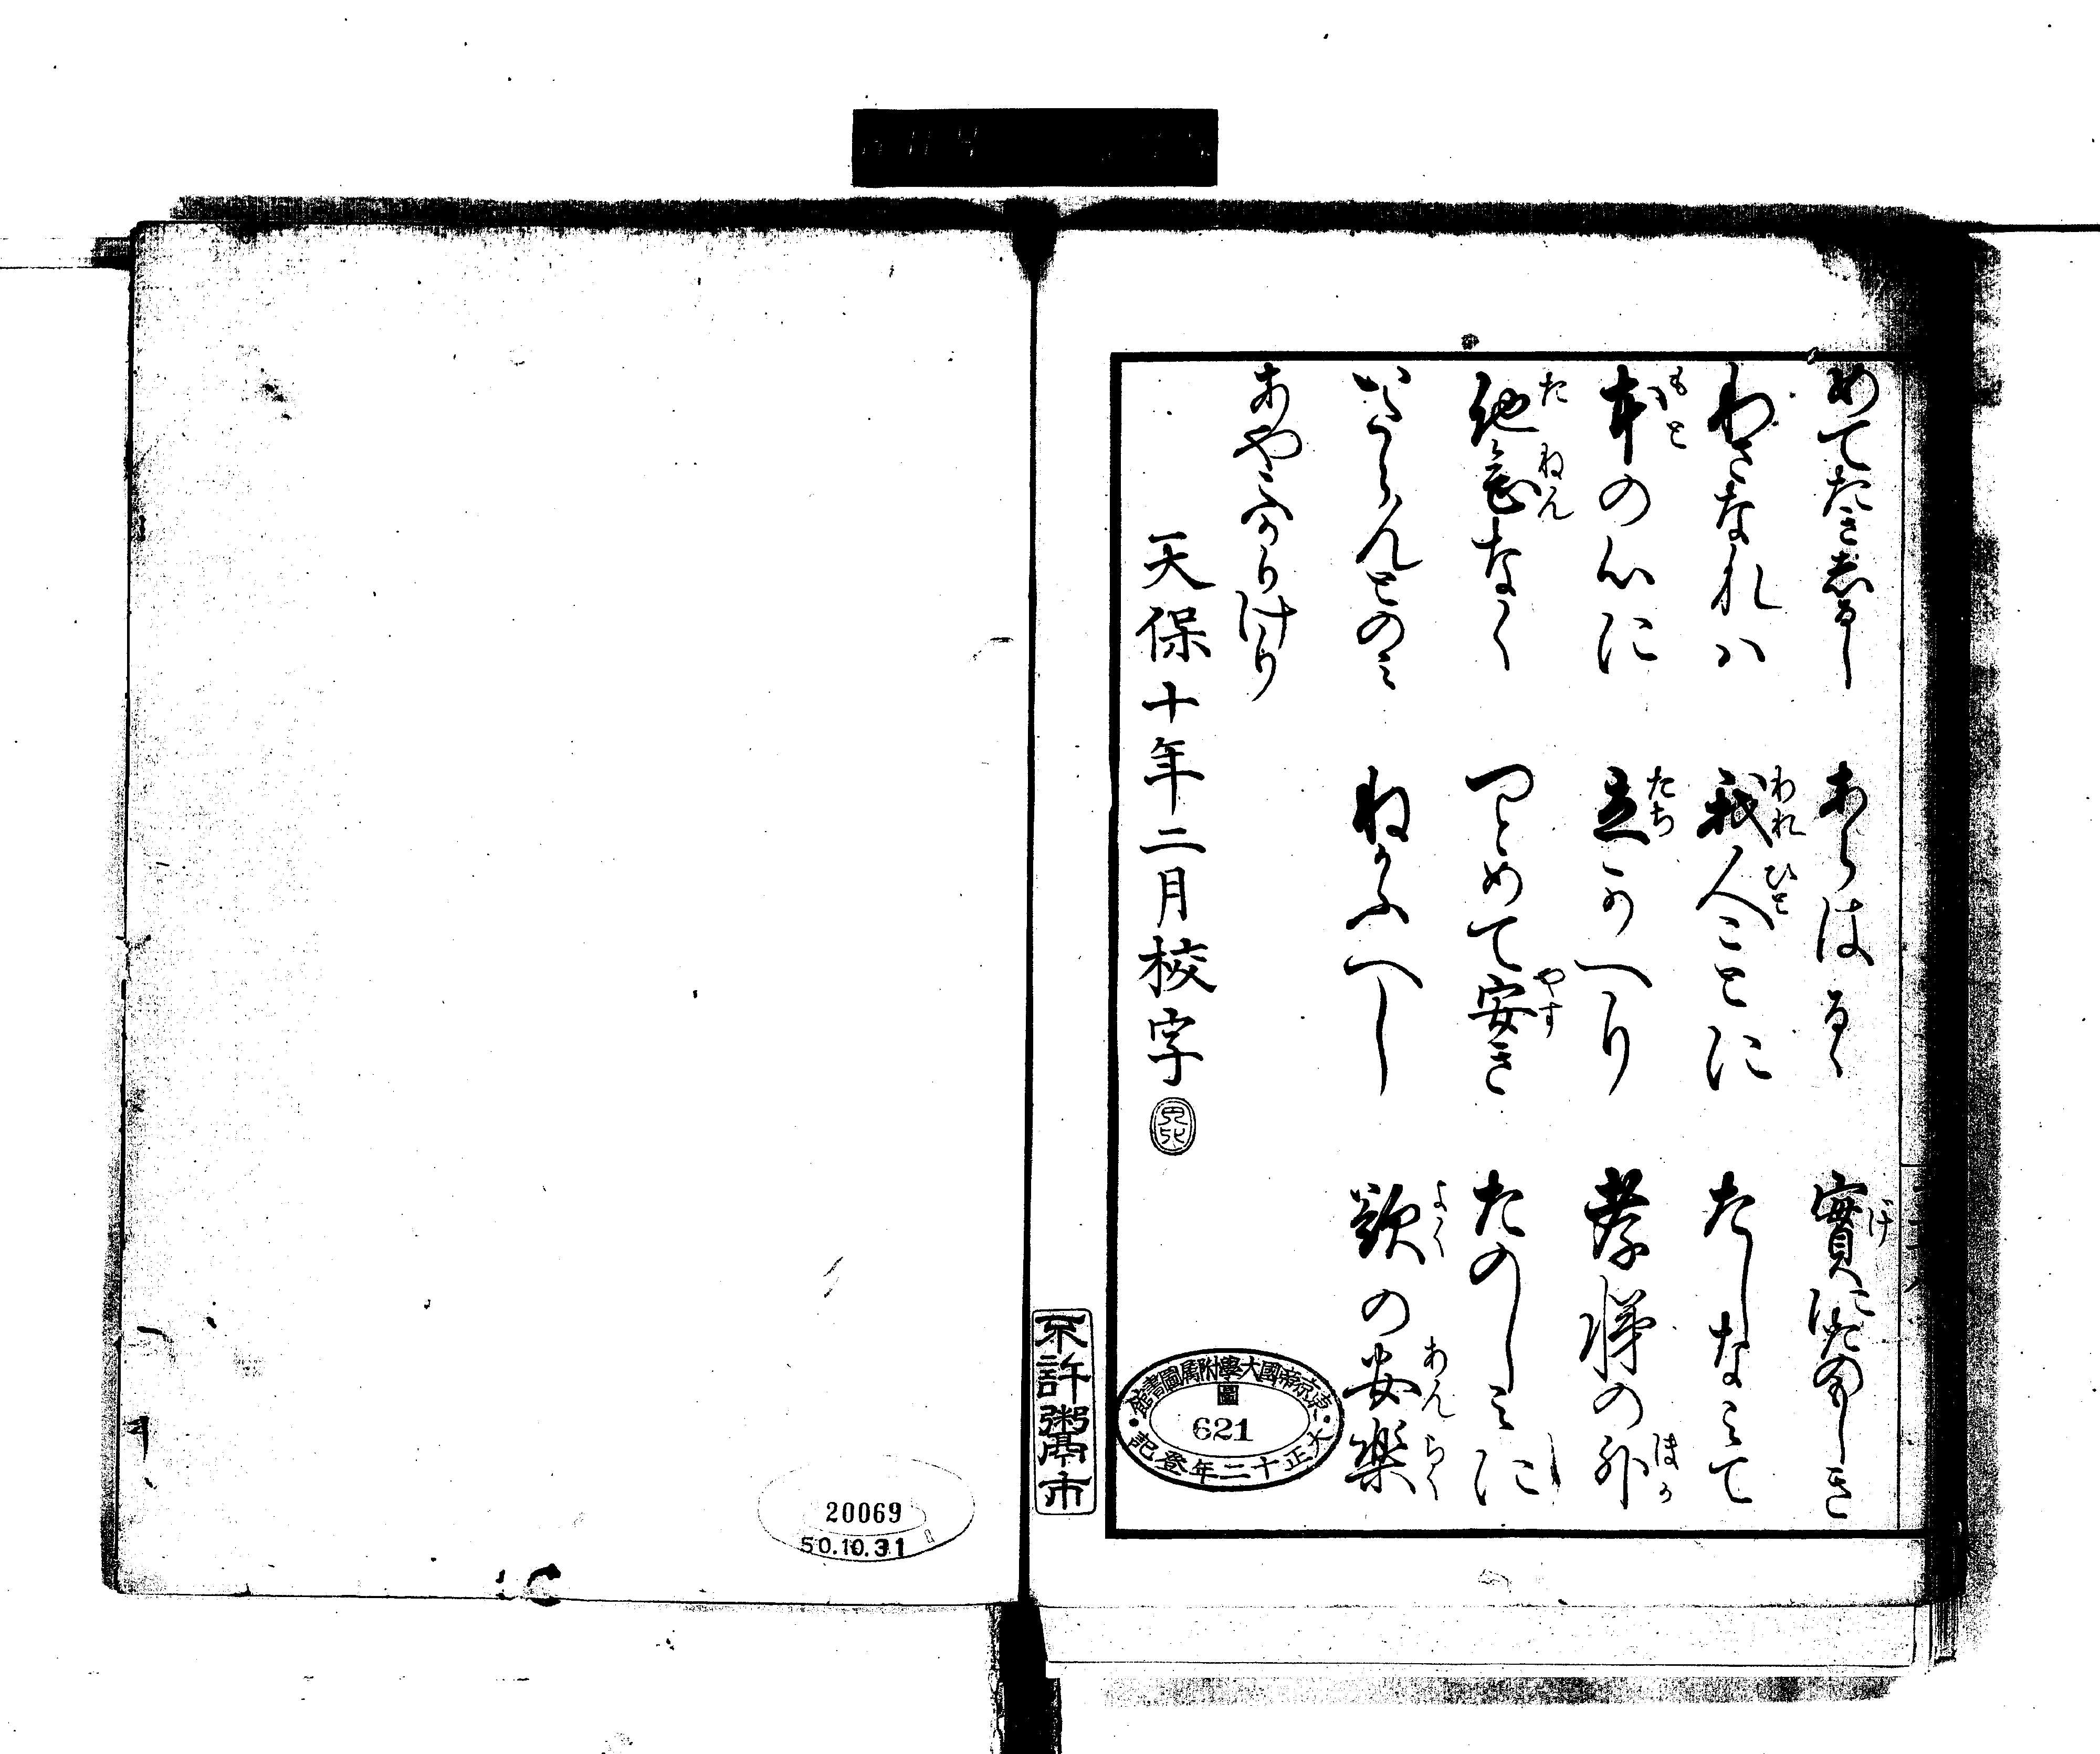 めてたきためし　あらはるゝ　實にたのもしき
わさなれハ　我人ことに　たしなみて
本の心に　立かへり　孝悌の外
他念なく　つとめて安き　たのしみに
いたらんとのミ　ねかふへし　欲の安樂
あやふかりけり
天保十年二月校字
不許粥市
東京帝國大學附屬圖書館
圖
621
大正十二年登記
20069
50.10.31